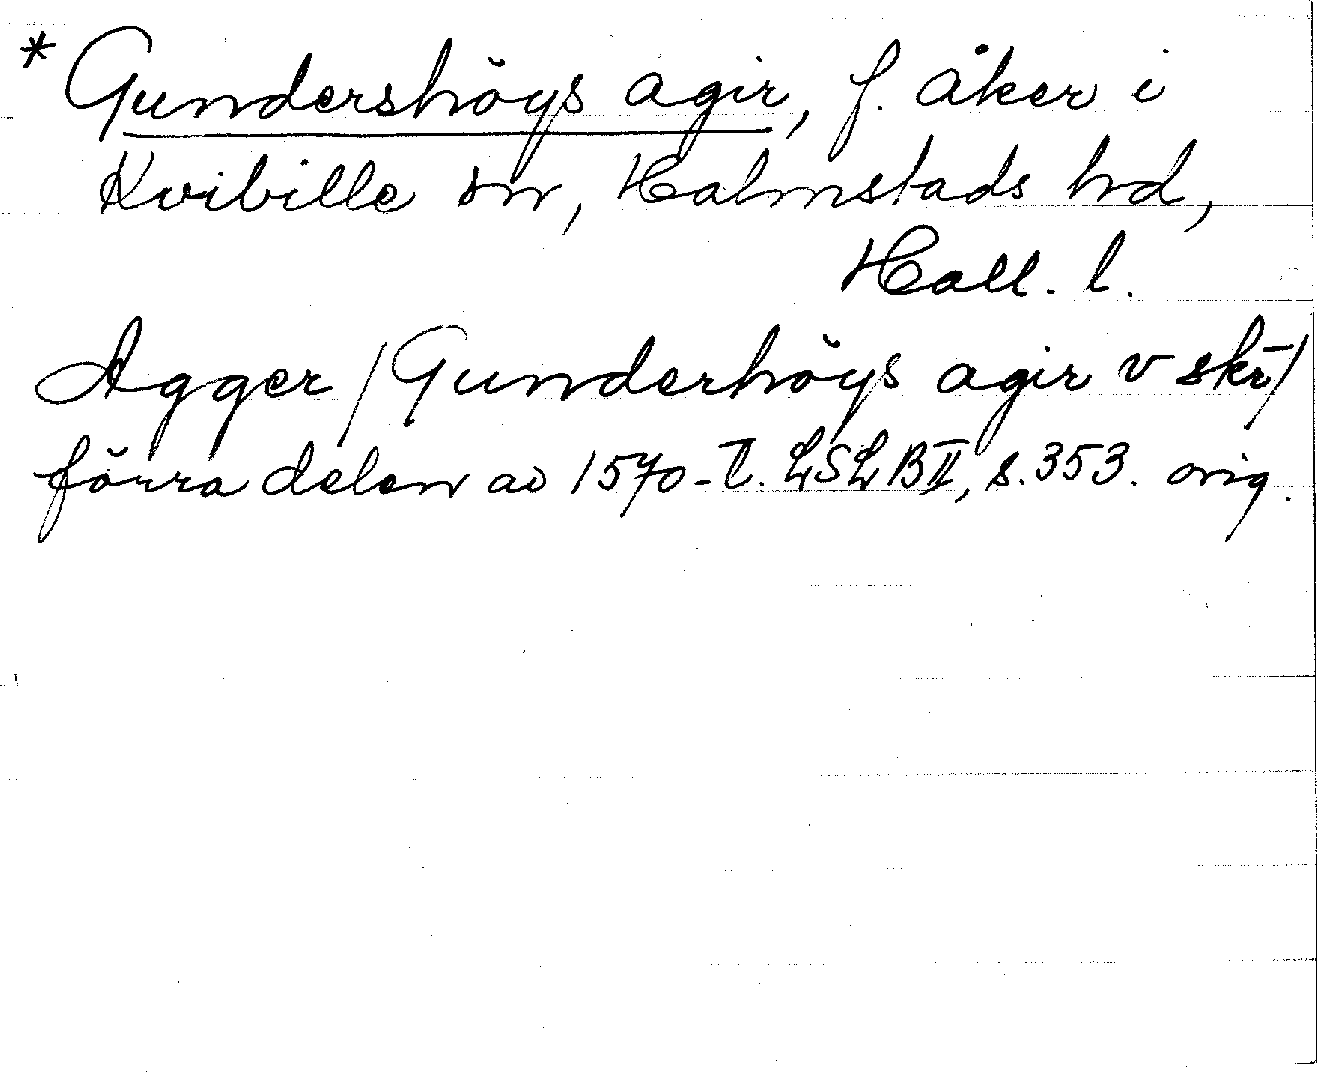 * Gundershöys agir, f. åker i
Kvibille sn, Halmstads hd,
Hall. l.
Agger / Gunderhöys agir v skr /
förra delen av 1570-t. LSLB II, s. 353. orig.